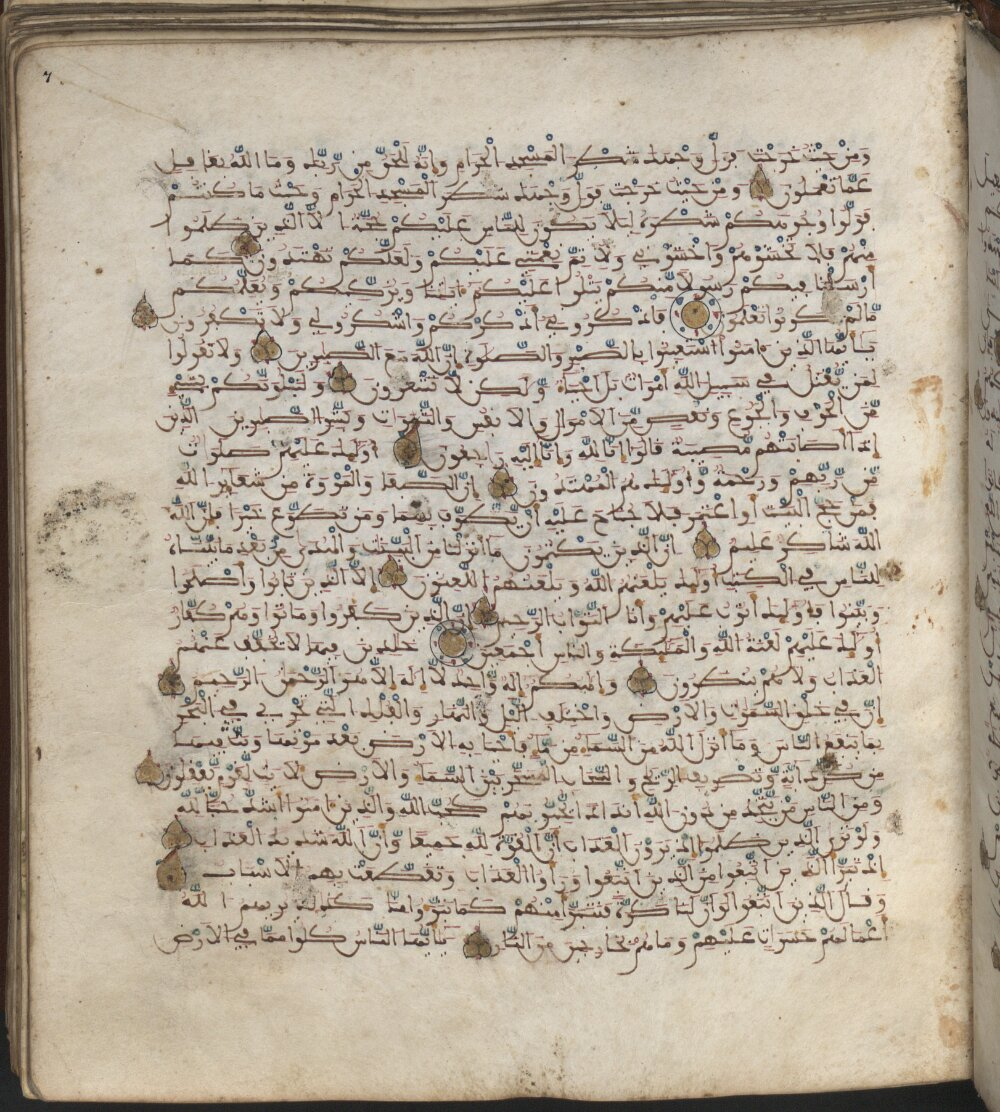 ومن حيث خرجت فول وجهك شطر المسجد الحرام وإنه للحق من ربك وما الله بغافل
عما تعملون ومن حيث خرجت فول وجهك شطر المسجد الحرام وحيث ما كنتم
فولوا وجوهكم شطره ليلا يكون للناس عليكم حجة الا الذين ظلموا
منهم فلا تخشوهم واخشوني ولاتم نعمتي عليكم ولعلكم تهتدون كما
ارسلنا فيكم رسولا منكم يتلوا عليكم ءايتنا ويزكيكم ويعلمكم
مالم تكونوا تعلمون فاذكروني أذكركم واشكروا لي ولا تكفرون
يأيها الذين ءامنوا استعينوا بالصبر والصلوة إن الله مع الصبرين ولا تقولوا
لمن يقتل في سبيل الله أموات بل أحياء ولكن لا تشعرون ولنبلونكم بشيء
من الخوف والجوع ونقص من الاموال والانفس والثمرات وبشر الصبرين الذين
إذا اصابتهم مصيبة قالوا إنا لله وإنا إليه راجعون أوليك عليهم صلوات
من ربهم ورحمة وأوليك هم المهتدون إن الصفا والمروة من شعاير الله
فمن حج البيت أو اعتمر فلا جناح عليه أن يطوف بهما ومن تطوع خيرا فإن الله
الله شاكر عليم إن الذين يكتمون ما أنزلنا من البينت والهدى من بعد ما بيناه
للناس في الكتب أوليك يلعنهم الله ويلعنهم اللعنون إلا الذين تابوا وأصلحوا
وبينوا فأوليك أتوب عليهم وانا التواب الرحيم إن الذين كفروا وماتوا وهم كفار
أوليك عليهم لعنة الله والمليكة والناس أجمعين خلدين فيها لا يخفف عنهم
العذاب ولا هم ينظرون وإلهكم إله واحد لا إله إلا هو الرحمن الرحيم
إن في خلق السموات والارض واختلف اليل والنهار والفلك التي تجري في البحر
بما ينفع الناس وما انزل الله من السماء من ماء فأحيا به الارض بعد موتها وبث فيها
من كل دابة وتصريف الريح والسحاب المسخر بين السماء والارض لايت لقوم يعقلون
ومن الناس من يتخذ من دون الله أندادا يحبونهم كحب الله والذين ءامنوا أشد حبا لله
ولو ترى الذين ظلموا إذ يرون العذاب أن القوة لله جميعا وأن الله شديد العذاب
إذ تبرأ الذين اتبعوا من الذين اتبعوا ورأوا العذاب وتقطعت بهم الاسباب
وقال الذين اتبعوا لو أن لنا كرة فنتبرأ منهم كما تبرءوا منا كذلك يريهم الله
أعمالهم حسرات عليهم وما هم بخارجين من النار يأيها الناس كلوا مما في الارض